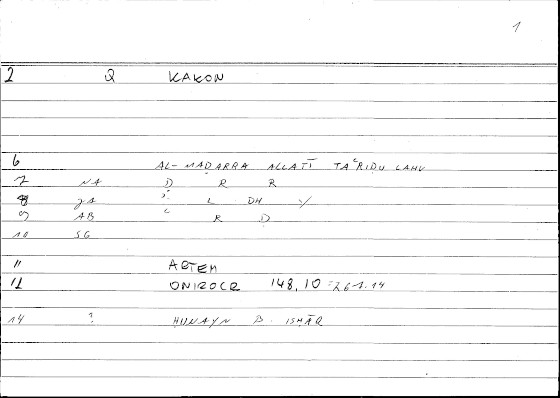 1
2 Q KAKON
6 AL-MAḌARRA ALLATĪ TAʿRIḌU LAHU
7 NA Ḍ R R
8 JA L DH Y
9 AB ʿ R Ḍ
10 SG
11 ARTEM
12 ONIROCR 148,10 = 261.14
14 ? ḤUNAYN B. ISḤĀQ